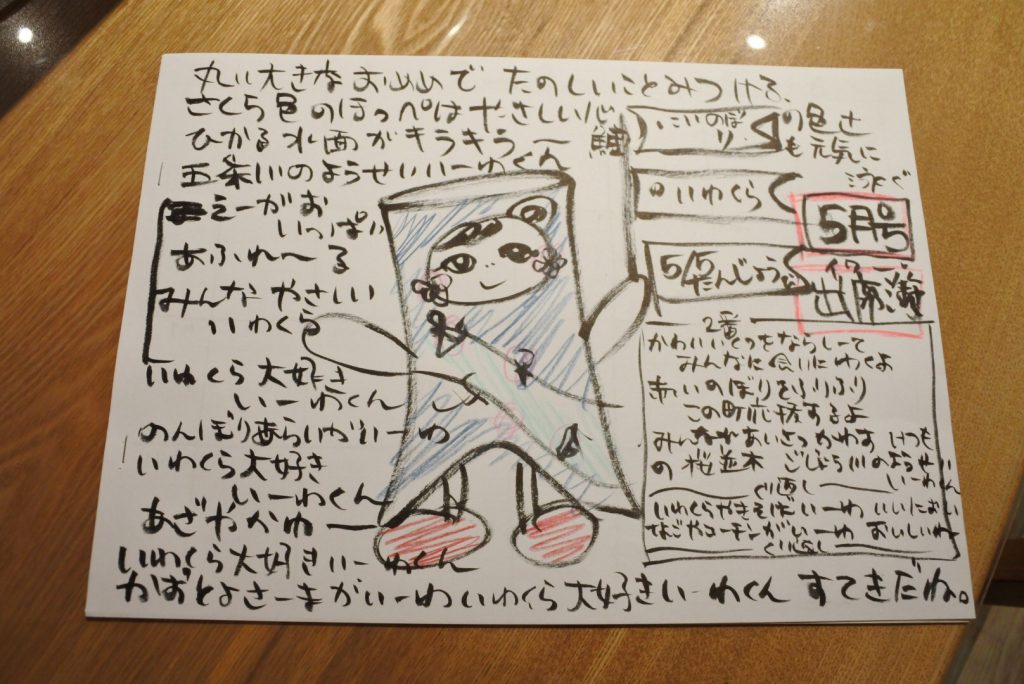 丸い大きなお山でたのしいことみつける、
さくら色のほっぺはやさしい心
ひかる水面がキラキラ〜
五条川のようせいいーわくん
えーがお
いっぱい
あふれ〜る
みんなやさしい
いわくら
いわくら大好き
いーわくん
のんぼりあらいがいーわ
いわくら大好き
いーわくん
あざやかねー
いわくら大好きいーわくん
かずとよさーまがいーわいわくら大好きいーわくんすてきだね。
鯉
こいのぼり
の色さ
も元気に
泳ぐ
いわくら
5/5
たんじょう
5月号
出席簿
2番
かわいいくつをならしーて
みんなに会いにわくよ
赤いのぼりをふりふり
この町応援するよ
みんながあいさつかわす いつも
の桜並木 ごじょう川のようせい
いーわくん
くり返し
いわくらやきそばいーわ いいにおい
なごやコーチンがいーわ おいしいわ
くり返し